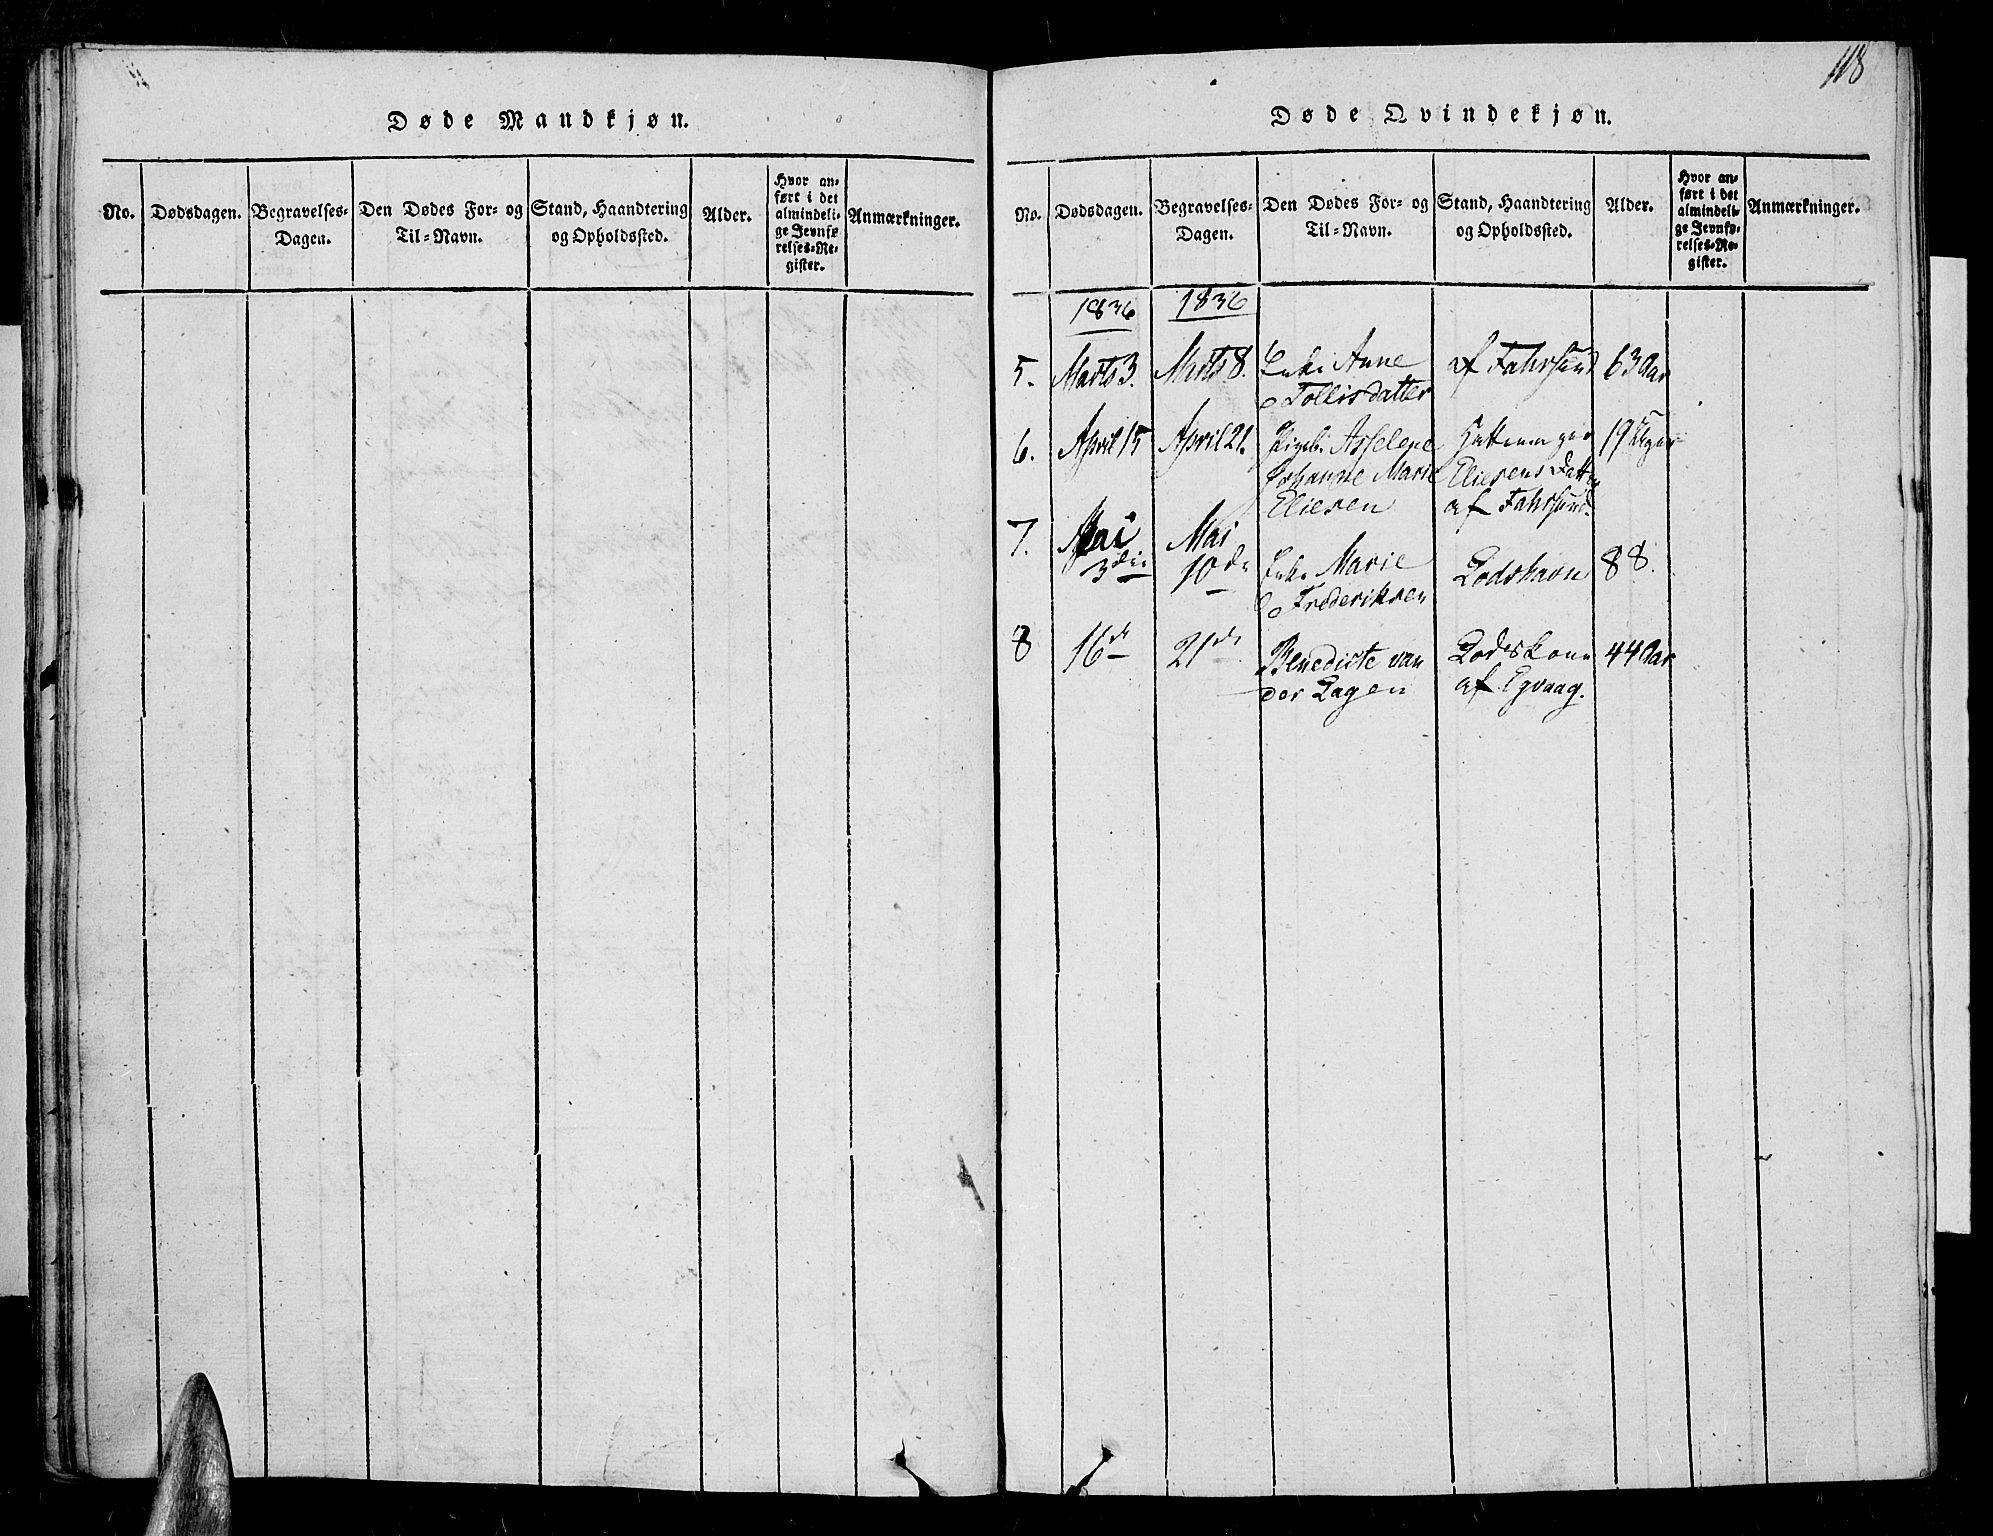 118
Døde Mandkjøn.
No.
Dødsdagen.
Begravelses-
Dagen.
Den Dødes For- og
Til-Navn.
Stand, Haandtering
og Opholdssted.
Alder.
Hvor an-
ført i det
almindeli-
ge Jevnfø-
relses-Re-
gister.
Anmærkninger.
Døde Qvindekjøn.
No.
Dødsdagen.
Begravelses-
Dagen.
Den Dødes For- og
Til-Navn.
Stand, Haandtering
og Opholdssted.
Alder.
Hvor an-
ført i det
almindeli-
ge Jevnfø-
relses-Re-
gister.
Anmærkninger.
1836 1836
5. Marts 3. Marts 8. Enke Anne af Fahrsund 63 Aar
Tollisdatter
6. April 15 April 21. Pigeb. Asselene 19 Uger
Johanne Marie Eliesens Datter
Eliesen af Fahrsund.
7. Mai Mai
3die 10de Enke Marie Lodshavn 88.
Frederiksen
8 16de 21de Benedicte van Lodskone 44 Aar
der Lagen af Egvaag.